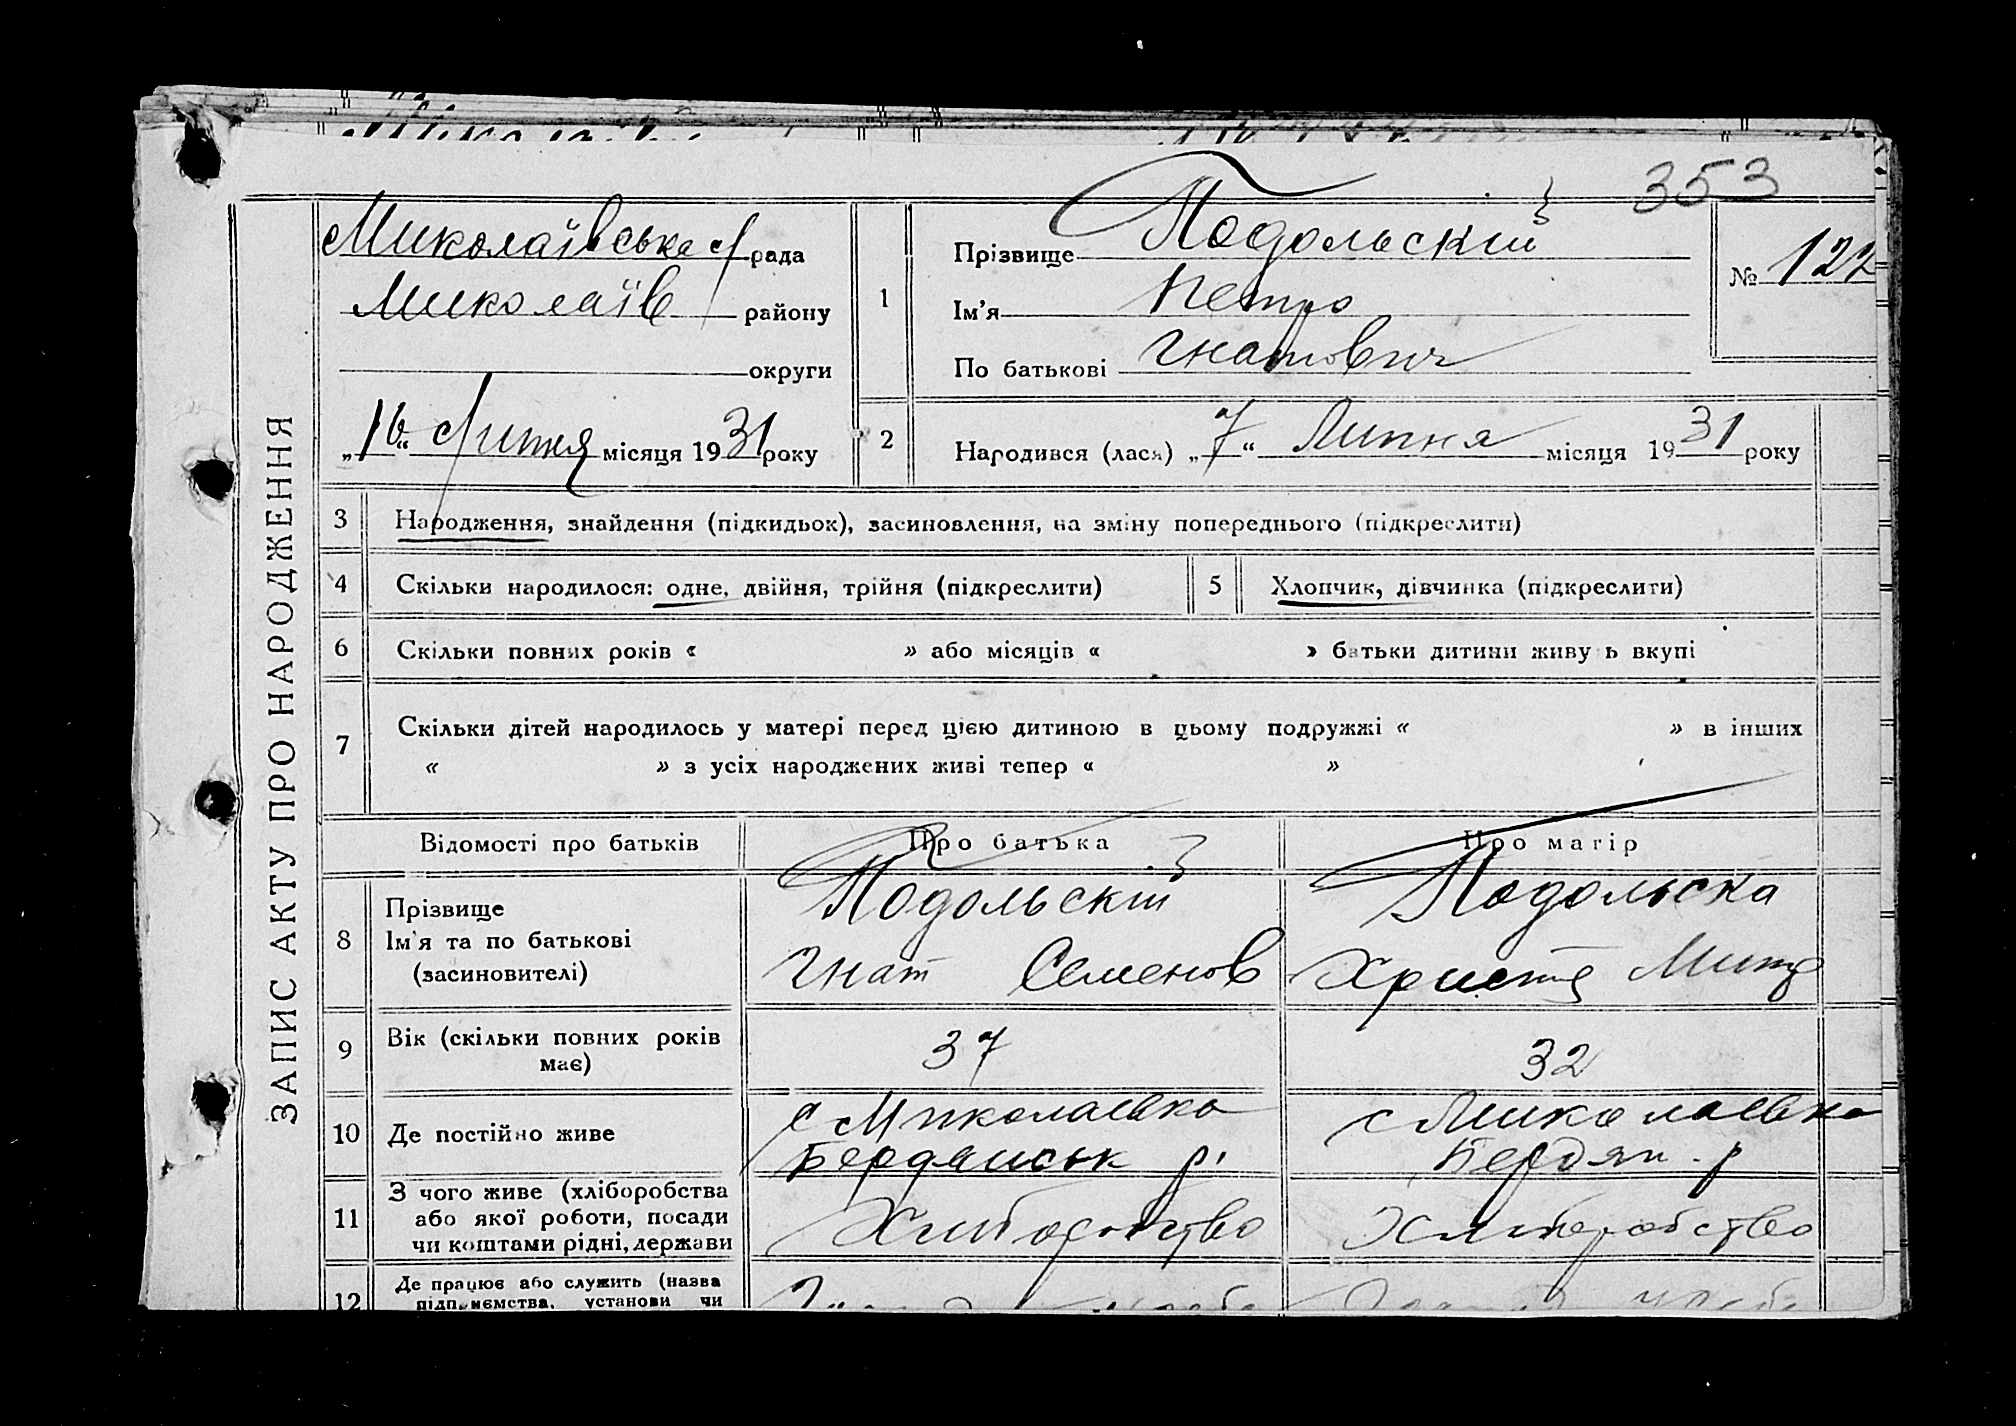 353
ЗАПИС АКТУ ПРО НАРОДЖЕННЯ
Миколаївське рада
Миколаїв району
округи
„16“ Липня місяця 1931 року
1
Прізвище Подольский
Ім'я Петро
По батькові Гнатович
№ 122
2 Народився (лася) „7“ Липня місяця 1931 року
3 Народження, знайдення (підкидьок), засиновлення, на зміну попереднього (підкреслити)
4 Скільки народилося: одне, двійня, трійня (підкреслити) 5 Хлопчик, дівчинка (підкреслити)
6 Скільки повних років « » або місяців « » батьки дитини живуть вкупі
7 Скільки дітей народилось у матері перед цією дитиною в цьому подружжі « » в інших
« » з усіх народжених живі тепер « »
Відомості про батьків Про батька Про матір
8 Прізвище Подольский Подольска
Ім'я та по батькові
(засиновителі) Гнат Семенов Христя
9 Вік (скільки повних років має) 37 32
10 Де постійно живе с Миколаевка с Миколаевка
Бердянськ р. Бердян. р
11 З чого живе (хліборобства
або якої роботи, посади Хліборобство Хліборобство
чи коштами рідні, держави
12 Де працює або служить (назва
підприємства, установи чи